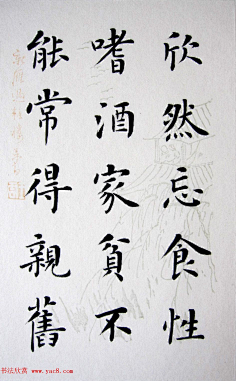 欣然忘食性
嗜酒家貧不
能常得親舊
书法欣赏 www.yac8.com